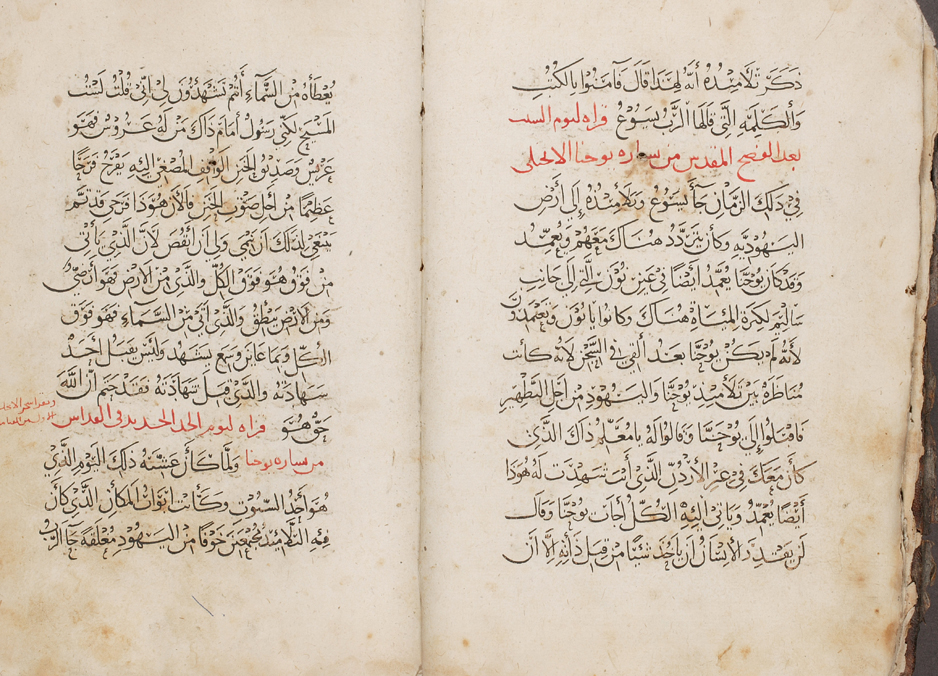 ذكرت تلاميذه أنه لهذا قال فآمنوا بالكتب
والكلمه التي قالها الرب يسوع قراه ليوم السبت
بعد الفصح المقدس من بشاره يوحنا الانجلي
في ذلك الزمان جا يسوع وتلاميذه إلى أرض
اليهوديه وكان يتردد هناك معهم ويعمد
وقد كان يوحنا يعمد أيضا في عين نون التي إلى جانب
ساليم لكثرة المياه هناك وكانوا ياتون ويعتمدون
لأنه لم يكن يوحنا بعد ألقي في السجن لانه كانت
مناظرة بين تلاميذ يوحنا واليهود من أجل التطهير
فاقبلوا إلى يوحنا وقالوا له يا معلم ذاك الذي
كان معك في عبر الأردن الذي أنت شهدت له هوذا
أيضا يعمد وياتي اليه الكل أجاب يوحنا وقال
لن يقتدر الإنسان أن ياخذ شيئا من قبل ذاته إلا أن
يعطاه من السماء أنتم تشهدون لي اني قلت لست
المسيح لكني رسول أمام ذاك من له عروس فهو
عريس وصديق الختن الواقف المصغي اليه يفرح فرحا
عظيما من أجل صوت الختن فالان هوذا فرحي قد تم
ينبغي لذلك أن ينمي ولي أن أنقص لان الذي يأتي
من فوق هو فوق الكل والذي من الارض فهو أرضي
ومن الأرض ينطق والذي اتى من السماء فهو فوق
الكل وبما عاين وسمع يشهد وليس يقبل أحد
شهادته والذي قبل شهادته فقد ختم ان الله
حق هو قراه ليوم الحد الجديد في القداس
من بشاره يوحنا ولما كان عشية ذلك اليوم الذي
هو أحد السبوت وكانت ابواب المكان الذي كان
فيه التلاميذ مجتمعين خوفا من اليهود مغلقة جا الرب